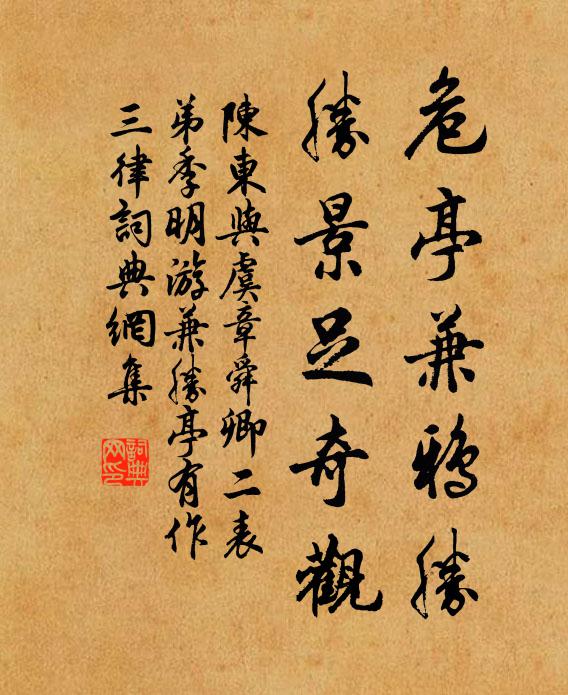 危亭兼鴉勝
勝景足奇觀
陳東與虞章舜卿二表
弟季明游兼勝亭有作
三律詞典網集
詞典网印